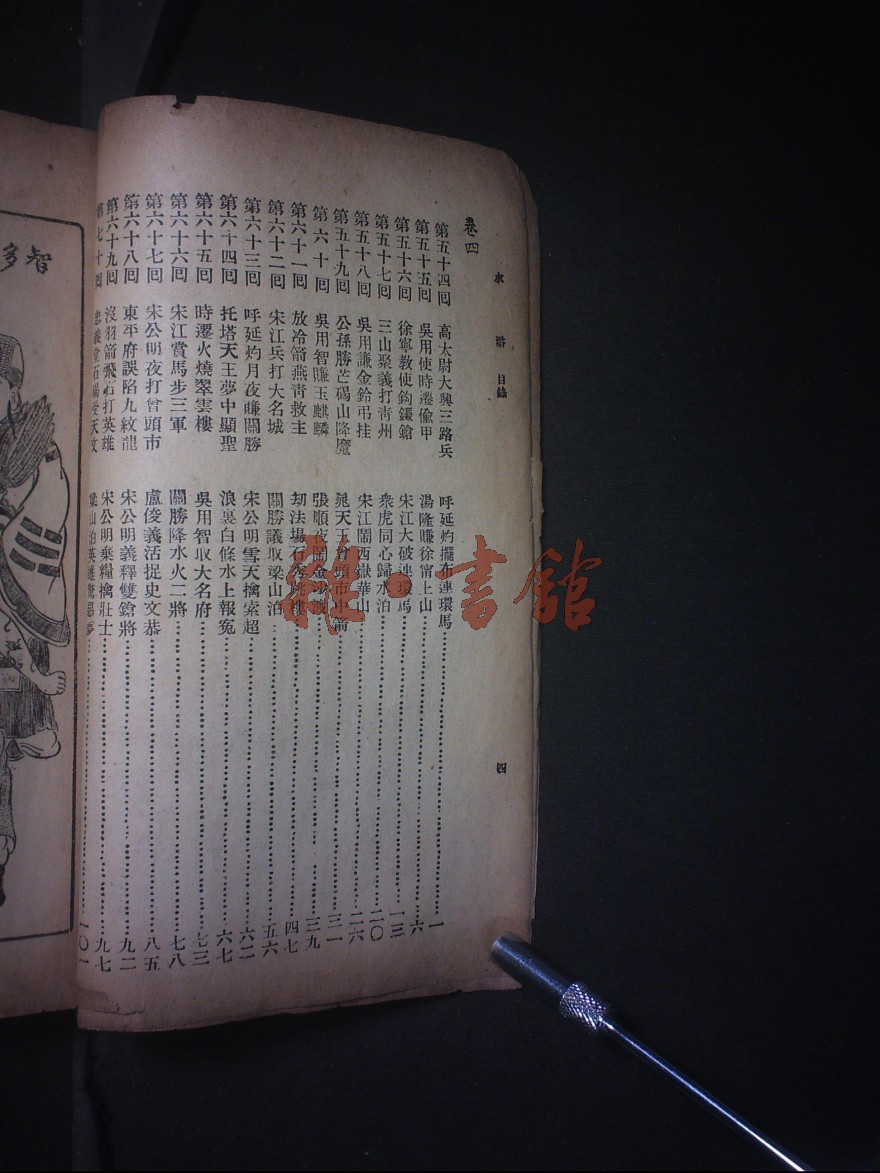 水滸 目錄 四
卷四
第五十四回 高太尉大興三路兵 呼延灼擺布連環馬 一
第五十五回 吳用使時遷偷甲 湯隆賺徐甯上山 六
第五十六回 徐寧教使鉤鐮鎗 宋江大破連環馬 一三
第五十七回 三山聚義打青州 衆虎同心歸水泊 二〇
第五十八回 吳用賺金鈴弔挂 宋江鬧西嶽華山 二六
第五十九回 公孫勝芒碭山降魔 晁天王曾頭市中箭 三一
第六十回 吳用智賺玉麒麟 張順夜鬧金沙渡 三九
第六十一回 放冷箭燕青救主 刧法塲石秀跳樓 四七
第六十二回 宋江兵打大名城 關勝議取梁山泊 五六
第六十三回 呼延灼月夜賺關勝 宋公明雪天擒索超 六二
第六十四回 托塔天王夢中顯聖 浪裏白條水上報冤 六七
第六十五回 時遷火燒翠雲樓 吳用智取大名府 七三
第六十六回 宋江賞馬步三軍 關勝降水火二將 七八
第六十七回 宋公明夜打曾頭市 盧俊義活捉史文恭 八五
第六十八回 東平府誤陷九紋龍 宋公明義釋雙鎗將 九二
第六十九回 沒羽箭飛石打英雄 宋公明棄糧擒壯士 九七
第七十回 忠義堂石碣受天文 梁山泊英雄驚惡夢 一〇一
智多
雜·書館